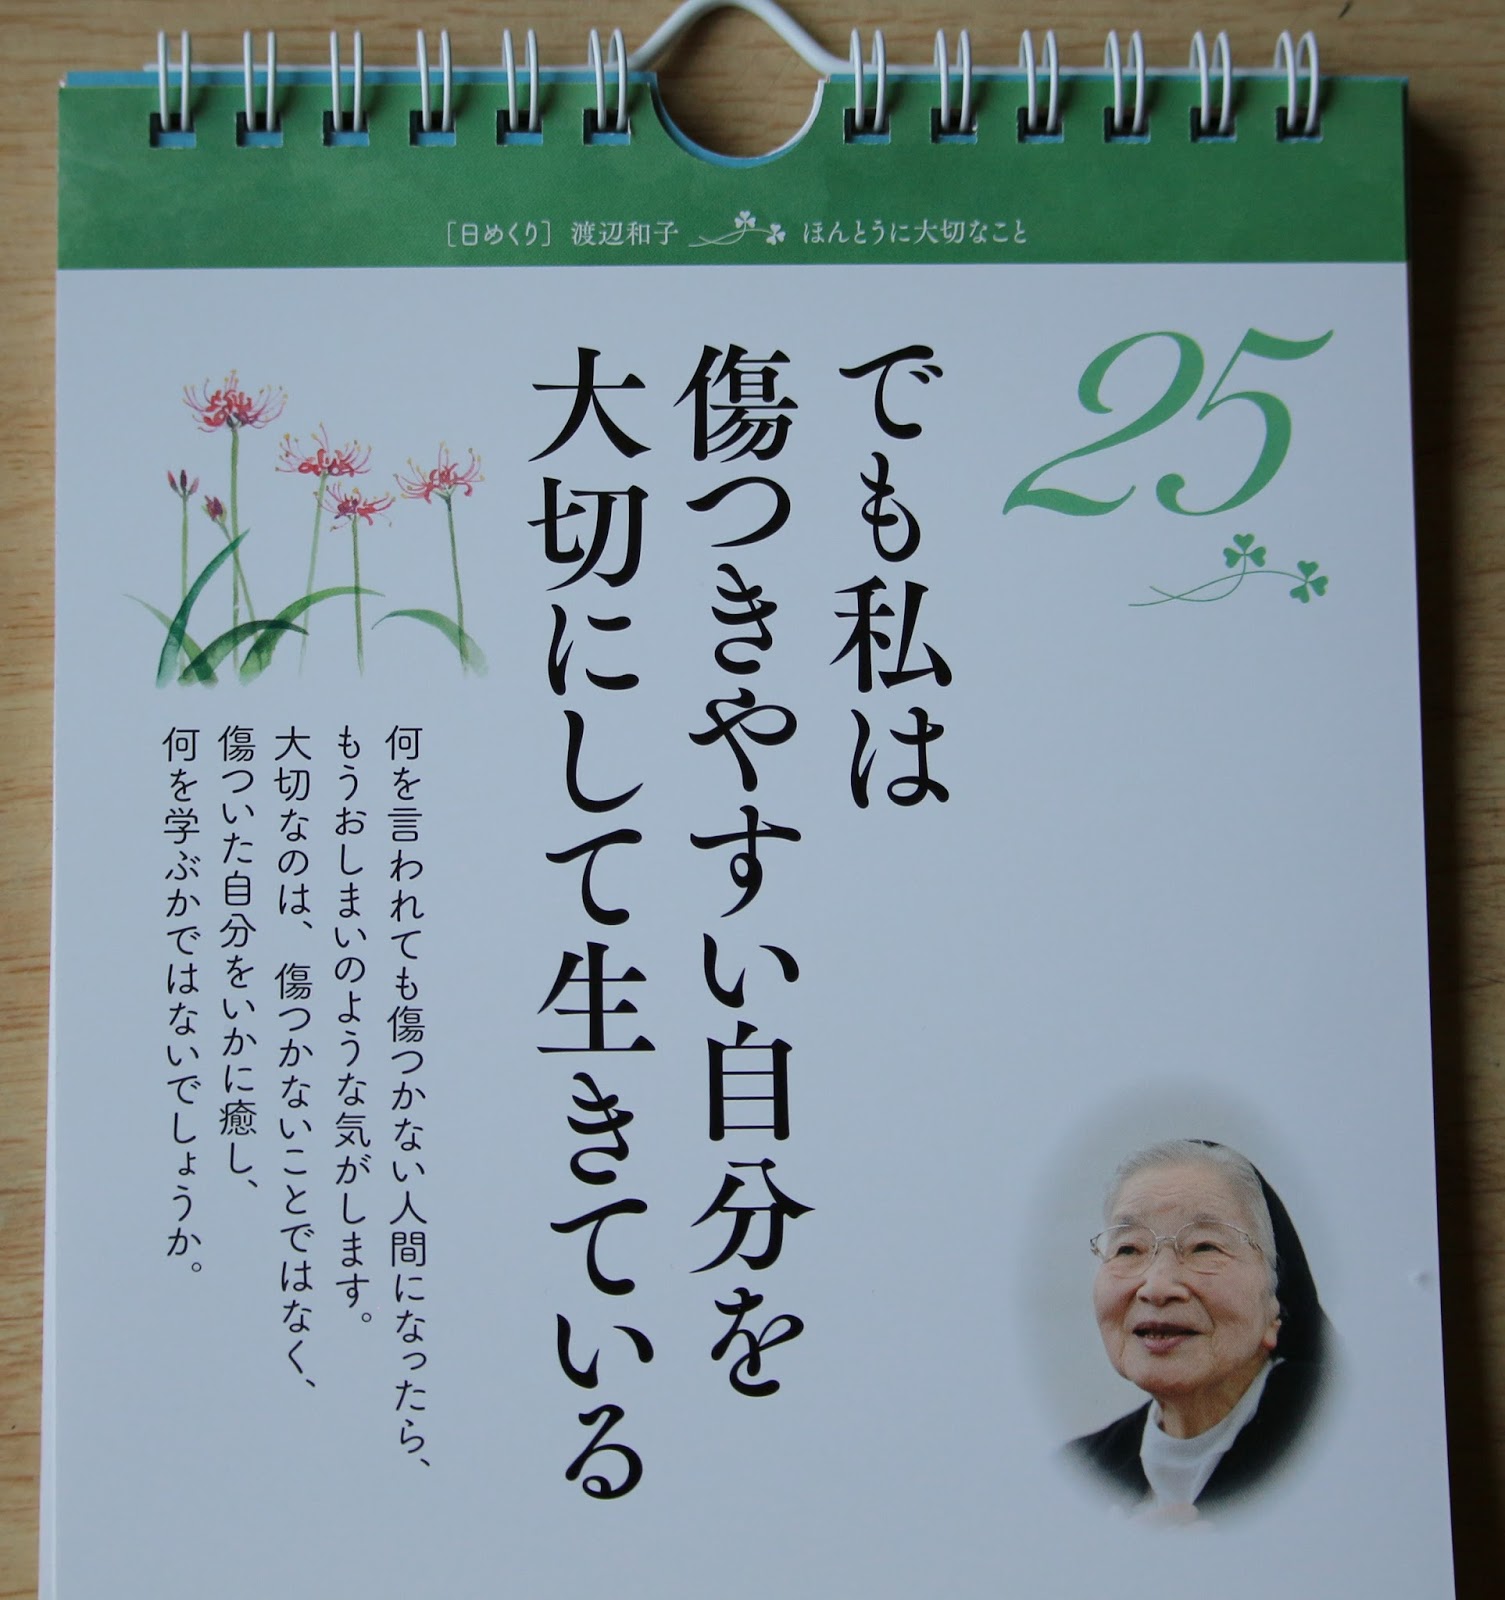 ［日めくり］ 渡辺和子 ほんとうに大切なこと
25
でも私は
傷つきやすい自分を
大切にして生きている
何を言われても傷つかない人間になったら、
もうおしまいのような気がします。
大切なのは、傷つかないことではなく、
傷ついた自分をいかに癒し、
何を学ぶかではないでしょうか。